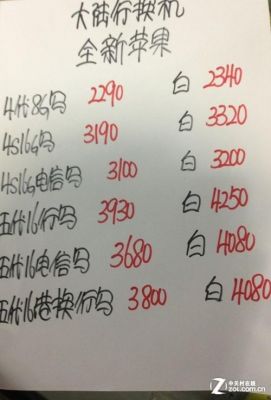 大陆行换机
全新苹果
4代8G鸟 2290 白 2340
4S16G鸟 3190 白 3320
4S16G电信鸟 3100 白 3200
五代16行鸟 3930 白 4250
五代16电信鸟 3680 白 4080
五代16港换行鸟 3800 白 4080
中关村在线
zol.com.cn